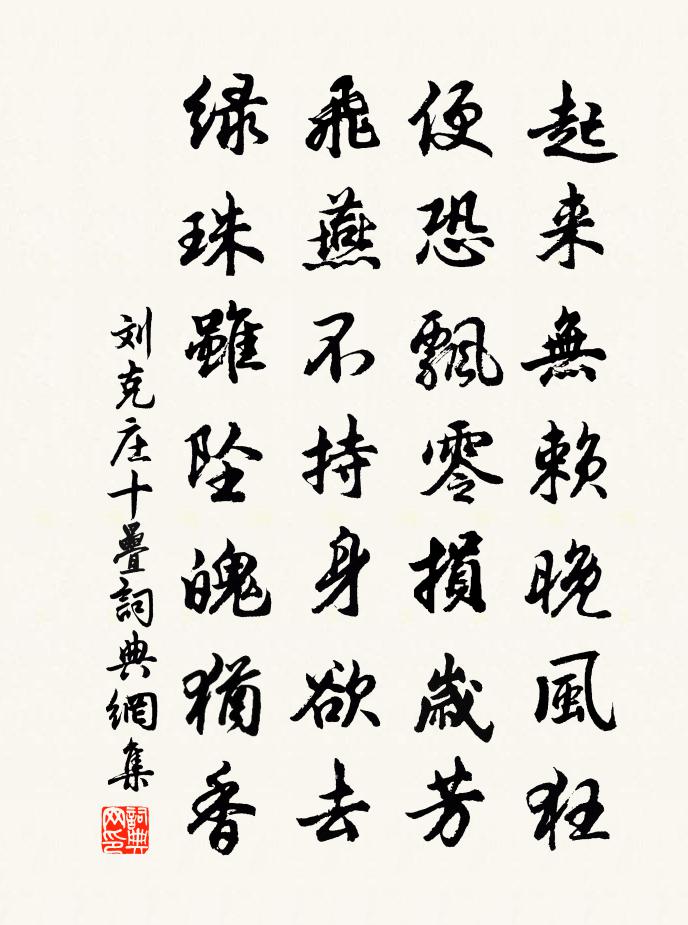 起来無賴晚風狂
便恐飄零損歲芳
飛燕不持身欲去
綠珠雖坠魄猶香
刘克庄十疊詞典網集
詞典
网印